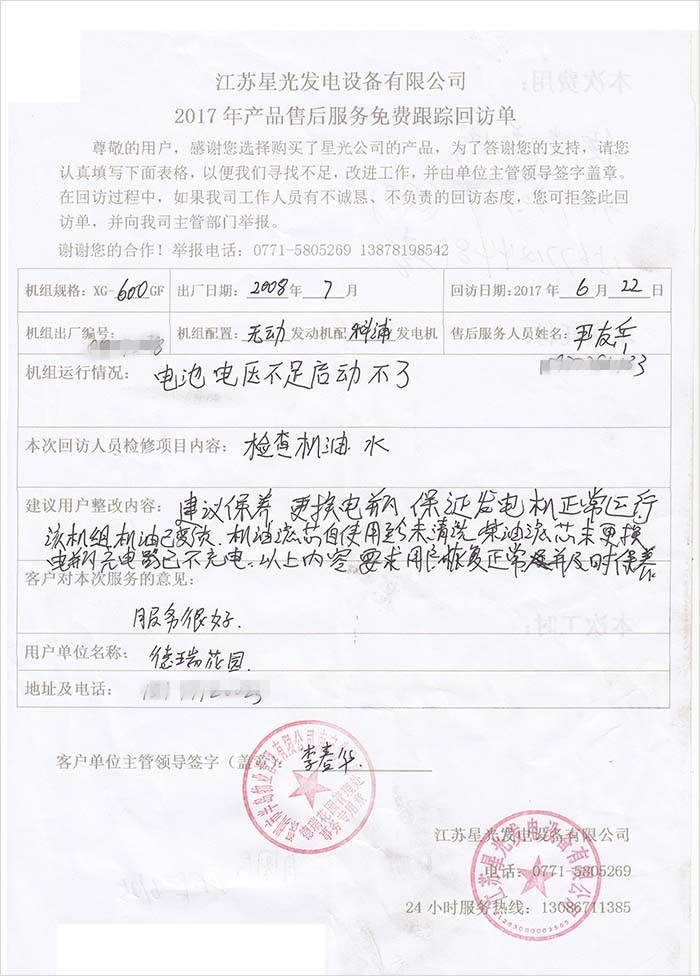 江苏星光发电设备有限公司
2017年产品售后服务免费跟踪回访单
尊敬的用户，感谢您选择购买了星光公司的产品，为了答谢您的支持，请您
认真填写下面表格，以便我们寻找不足，改进工作，并由单位主管领导签字盖章。
在回访过程中，如果我司工作人员有不诚恳、不负责的回访态度，您可拒签此回
访单，并向我司主管部门举报。
谢谢您的合作！举报电话：0771-5805269 13878198542
机组规格：XG-600GF 出厂日期：2008年7月 回访日期：2017年6月22日
机组出厂编号： 机组配置：无动发动机配科浦发电机 售后服务人员姓名：尹友兵
机组运行情况：电池电压不足启动不了
本次回访人员检修项目内容：检查机油 水
建议用户整改内容：建议保养 更换电瓶 保证发电机正常运行
该机组机油已 机油滤芯自使用 未清洗 柴油滤芯未更换
电瓶充电器已不充电。以上内容要求用户恢复正常 并及时保养
客户对本次服务的意见：
服务很好.
用户单位名称：德瑞花园.
地址及电话：
客户单位主管领导签字（盖章）：李春华
德瑞花园管理处
事务专用章
江苏星光发电设备有限公司
电话：0771-5805269
24小时服务热线：13086711385
江苏星光发电设备有限公司
本次费用：
本次工时：